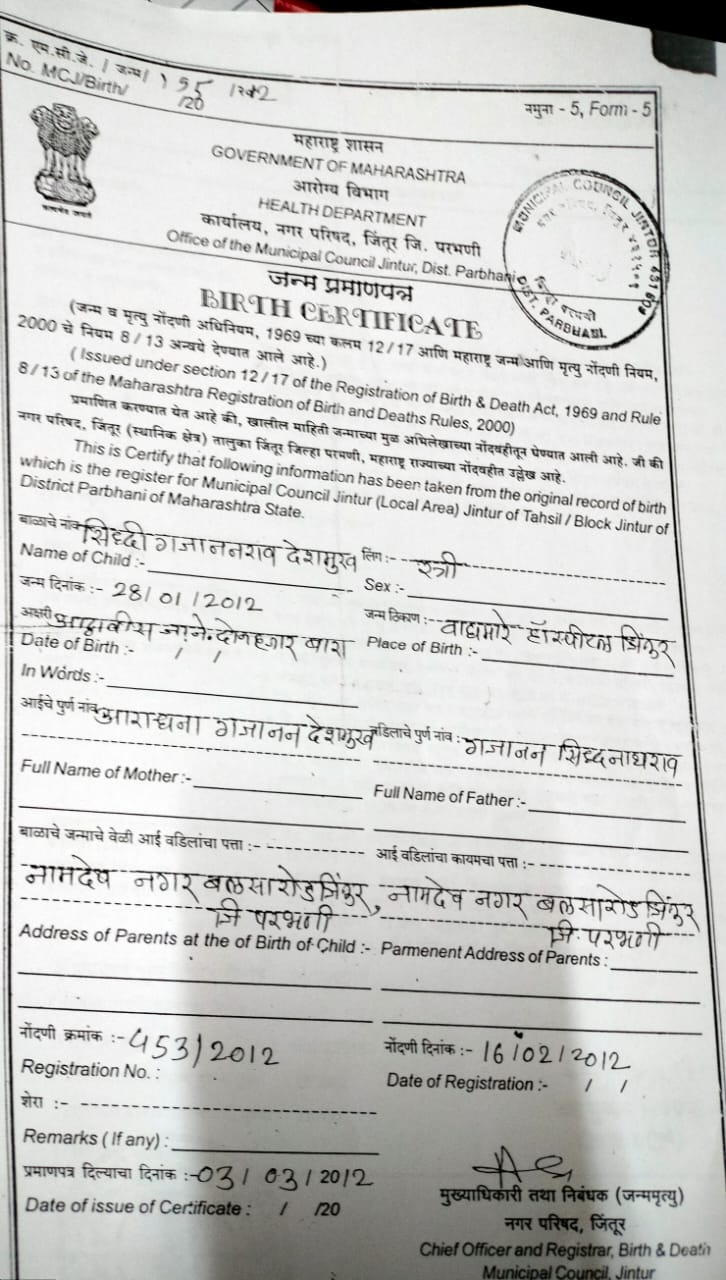 क्र. एम.सी.जे. / जन्म/ 155 /२०१२
No. MCJ/Birth/ /20
नमुना - 5, Form - 5
महाराष्ट्र शासन
GOVERNMENT OF MAHARASHTRA
आरोग्य विभाग
HEALTH DEPARTMENT
कार्यालय, नगर परिषद, जिंतूर जि. परभणी
Office of the Municipal Council Jintur, Dist. Parbhani
MUNICIPAL COUNCIL JINTUR 431 509
DIST. PARBHANI
जन्म प्रमाणपत्र
BIRTH CERTIFICATE
(जन्म व मृत्यु नोंदणी अधिनियम, 1969 च्या कलम 12/17 आणि महाराष्ट्र जन्म आणि मृत्यु नोंदणी नियम,
2000 चे नियम 8/13 अन्वये देण्यात आले आहे.)
( Issued under section 12/17 of the Registration of Birth & Death Act, 1969 and Rule
8/13 of the Maharashtra Registration of Birth and Deaths Rules, 2000)
प्रमाणित करण्यात येत आहे की, खालील माहिती जन्माच्या मुळ अभिलेखाच्या नोंदवहीतून घेण्यात आली आहे. जी की
नगर परिषद, जिंतूर (स्थानिक क्षेत्र) तालुका जिंतूर जिल्हा परभणी, महाराष्ट्र राज्याच्या नोंदवहीत उल्लेख आहे.
This is Certify that following information has been taken from the original record of birth
which is the register for Municipal Council Jintur (Local Area) Jintur of Tahsil / Block Jintur of
District Parbhani of Maharashtra State.
बाळाचे नांव सिध्दी गजाननराव देशमुख लिंग:- स्त्री
Name of Child :- Sex :-
जन्म दिनांक :- 28/01/2012 जन्म ठिकाण :- वाघमारे हॉस्पीटल जिंतूर
अक्षरी अठ्ठावीस जाने. दोन हजार बारा
Date of Birth :- / / Place of Birth :-
In Words :-
आईचे पुर्ण नांव आराधना गजानन देशमुख वडिलाचे पुर्ण नांव : गजानन सिध्दनाथराव
Full Name of Mother :- Full Name of Father :-
बाळाचे जन्माचे वेळी आई वडिलांचा पत्ता :- आई वडिलांचा कायमचा पत्ता :-
नामदेव नगर बलसा रोड जिंतूर, नामदेव नगर बलसा रोड जिंतूर
जि परभणी जि. परभणी
Address of Parents at the of Birth of Child :- Parmenent Address of Parents :
नोंदणी क्रमांक :- 453/2012 नोंदणी दिनांक :- 16/02/2012
Registration No. : Date of Registration :- / /
शेरा :-
Remarks ( If any) :
प्रमाणपत्र दिल्याचा दिनांक :- 03/03/2012
Date of issue of Certificate : / /20
मुख्याधिकारी तथा निबंधक (जन्ममृत्यु)
नगर परिषद, जिंतूर
Chief Officer and Registrar, Birth & Death
Municipal Council, Jintur